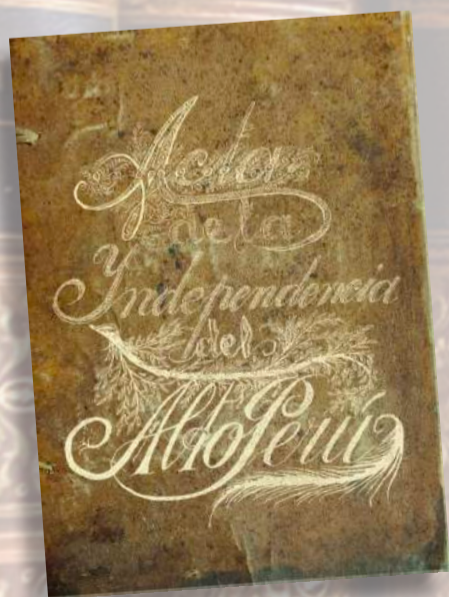 Acta
de la
Yndependencia
del
Alto Perú